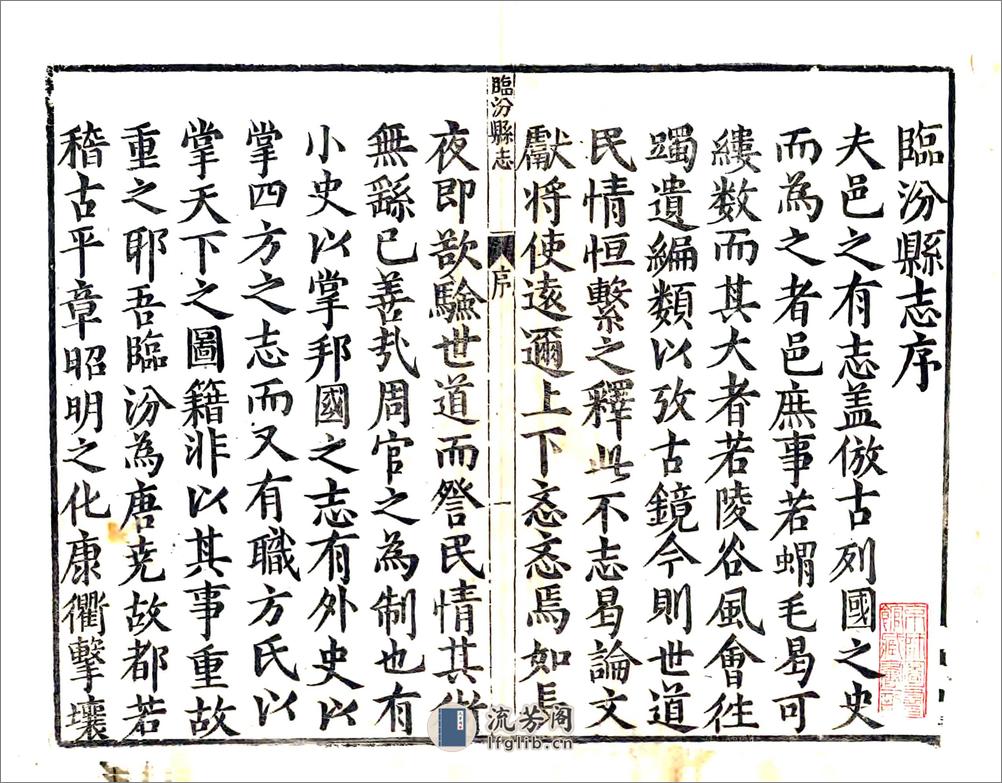 臨汾縣志序
夫邑之有志盖倣古列國之史
而為之者邑庶事若蝟毛曷可
縷数而其大者若陵谷風會往
躅遺編類以攷古鏡今則世道
民情恒繫之釋此不志曷論文
獻将使遠邇上下忞忞焉如長
臨汾縣志
序
一
夜即欲驗世道而詧民情其
無繇已善㢤周官之為制也有
小史以掌邦國之志有外史以
掌四方之志而又有職方氏以
掌天下之圖籍非以其事重故
重之耶吾臨汾為唐尭故都若
稽古平章昭明之化康衢擊壤
流芳阁
lfglib.cn